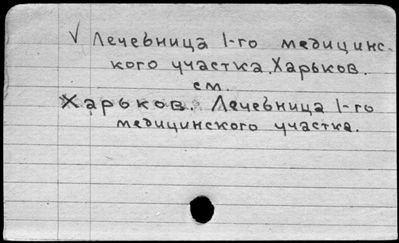 √ Лечебница 1-го медицинс-
кого участка, Харьков.
см.
Харьков. Лечебница 1-го
медицинского участка.